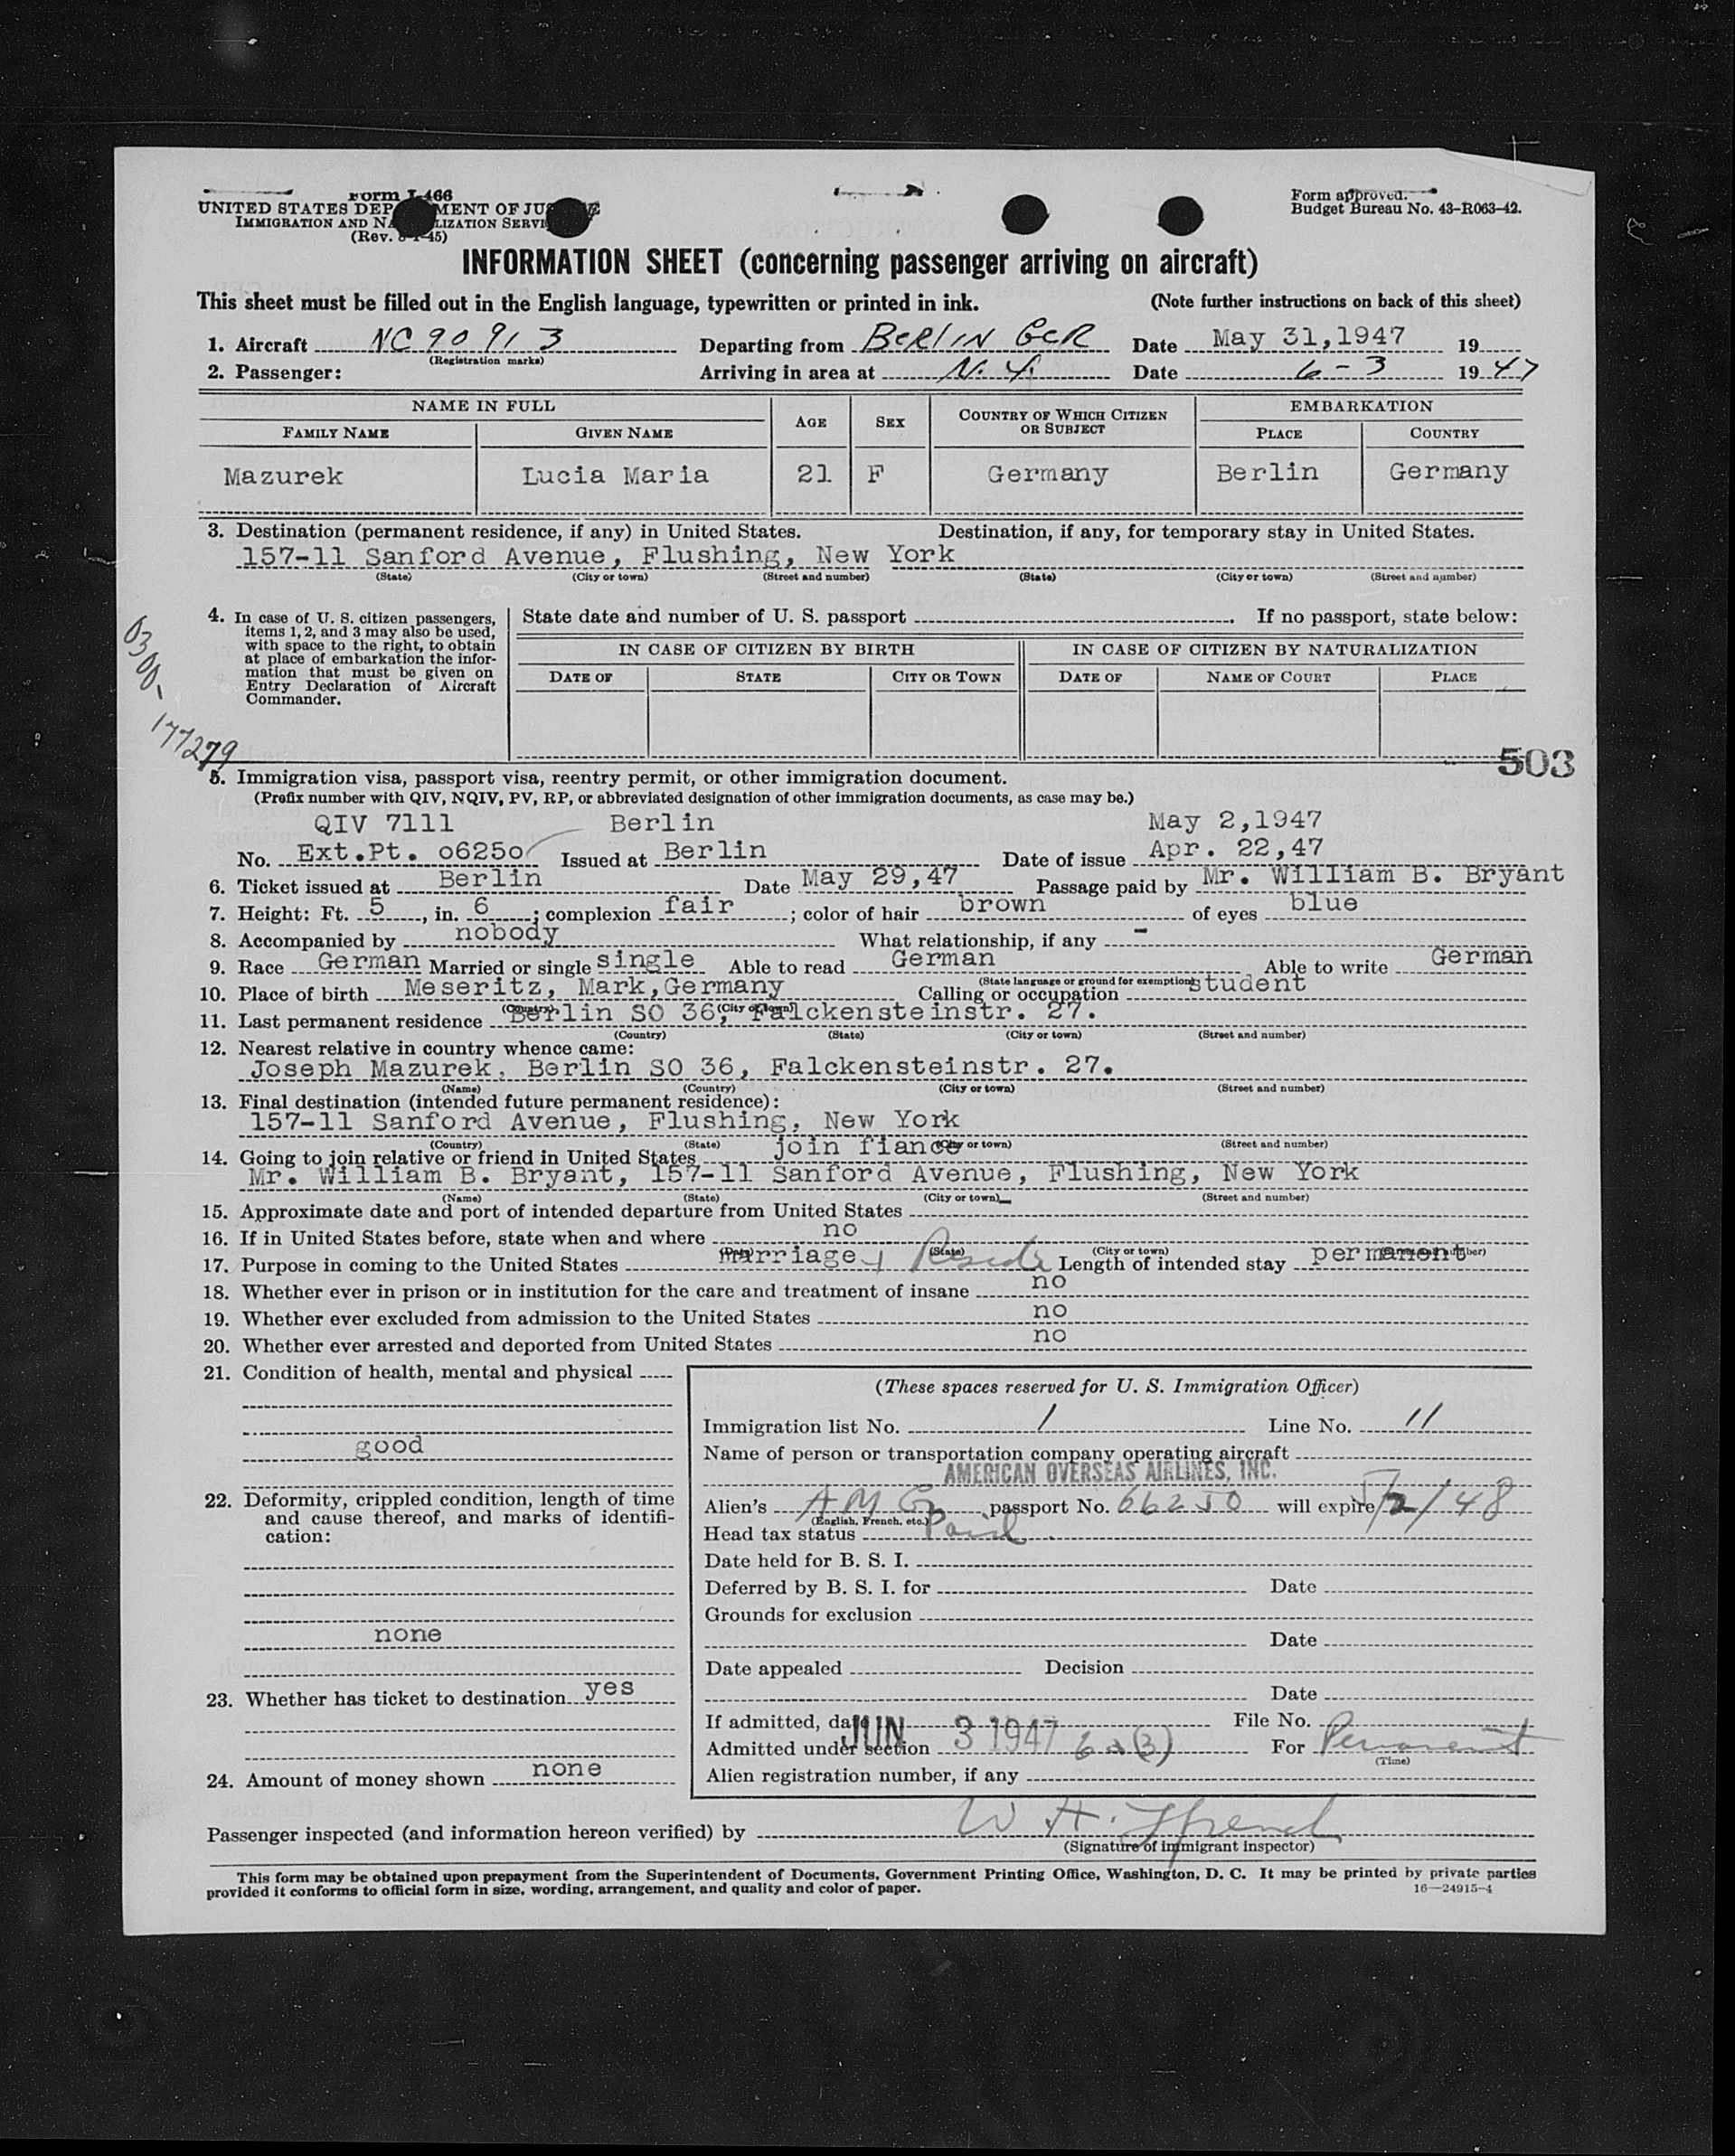 Form I-466
UNITED STATES DEPARTMENT OF JUSTICE
IMMIGRATION AND NATURALIZATION SERVICE
(Rev. 8-1-45)
Form approved.
Budget Bureau No. 43-R063-42.
INFORMATION SHEET (concerning passenger arriving on aircraft)
This sheet must be filled out in the English language, typewritten or printed in ink. (Note further instructions on back of this sheet)
1. Aircraft NC 90913 Departing from BERLIN GER Date May 31,1947 19
(Registration marks)
2. Passenger: Arriving in area at N.Y. Date 6-3 1947
NAME IN FULL AGE SEX COUNTRY OF WHICH CITIZEN OR SUBJECT EMBARKATION
FAMILY NAME GIVEN NAME PLACE COUNTRY
Mazurek Lucia Maria 21 F Germany Berlin Germany
3. Destination (permanent residence, if any) in United States. Destination, if any, for temporary stay in United States.
157-11 Sanford Avenue, Flushing, New York
(State) (City or town) (Street and number) (State) (City or town) (Street and number)
4. In case of U. S. citizen passengers,
items 1, 2, and 3 may also be used,
with space to the right, to obtain
at place of embarkation the infor-
mation that must be given on
Entry Declaration of Aircraft
Commander.
State date and number of U. S. passport . If no passport, state below:
IN CASE OF CITIZEN BY BIRTH IN CASE OF CITIZEN BY NATURALIZATION
DATE OF STATE CITY OR TOWN DATE OF NAME OF COURT PLACE
0300-177279
503
5. Immigration visa, passport visa, reentry permit, or other immigration document.
(Prefix number with QIV, NQIV, PV, RP, or abbreviated designation of other immigration documents, as case may be.)
QIV 7111 Berlin May 2,1947
No. Ext.Pt. o625o Issued at Berlin Date of issue Apr. 22,47
6. Ticket issued at Berlin Date May 29,47 Passage paid by Mr. William B. Bryant
7. Height: Ft. 5, in. 6; complexion fair; color of hair brown of eyes blue
8. Accompanied by nobody What relationship, if any -
9. Race German Married or single single Able to read German Able to write German
(State language or ground for exemption)
10. Place of birth Meseritz, Mark,Germany Calling or occupation student
(Country) (City or town)
11. Last permanent residence Berlin SO 36, Falckensteinstr. 27.
(Country) (State) (City or town) (Street and number)
12. Nearest relative in country whence came:
Joseph Mazurek, Berlin SO 36, Falckensteinstr. 27.
(Name) (Country) (City or town) (Street and number)
13. Final destination (intended future permanent residence):
157-11 Sanford Avenue, Flushing, New York
(Country) (State) (City or town) (Street and number)
14. Going to join relative or friend in United States join fiance
Mr. William B. Bryant, 157-11 Sanford Avenue, Flushing, New York
(Name) (State) (City or town) (Street and number)
15. Approximate date and port of intended departure from United States
16. If in United States before, state when and where no
(Date) (State) (City or town) (Street and number)
17. Purpose in coming to the United States marriage + Reside Length of intended stay permanent
18. Whether ever in prison or in institution for the care and treatment of insane no
19. Whether ever excluded from admission to the United States no
20. Whether ever arrested and deported from United States no
21. Condition of health, mental and physical
good
22. Deformity, crippled condition, length of time
and cause thereof, and marks of identifi-
cation:
none
23. Whether has ticket to destination yes
24. Amount of money shown none
(These spaces reserved for U. S. Immigration Officer)
Immigration list No. 1 Line No. 11
Name of person or transportation company operating aircraft
AMERICAN OVERSEAS AIRLINES, INC.
Alien's passport No. 66250 will expire 5/2/48
(English, French, etc.)
Head tax status Paid
Date held for B. S. I.
Deferred by B. S. I. for Date
Grounds for exclusion
Date
Date appealed Decision
Date
If admitted, date JUN 3 1947 File No.
Admitted under section 6a(3) For Permanent
(Time)
Alien registration number, if any
Passenger inspected (and information hereon verified) by
(Signature of immigrant inspector)
This form may be obtained upon prepayment from the Superintendent of Documents, Government Printing Office, Washington, D. C. It may be printed by private parties
provided it conforms to official form in size, wording, arrangement, and quality and color of paper.
16—24915-4